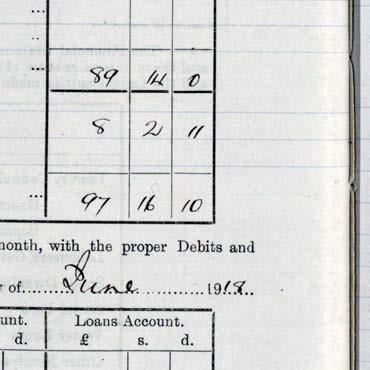 89 14 0
8 2 11
... 97 16 10
month, with the proper Debits and
y of......June..............1918..
unt. Loans Account.
d. £ s. d.